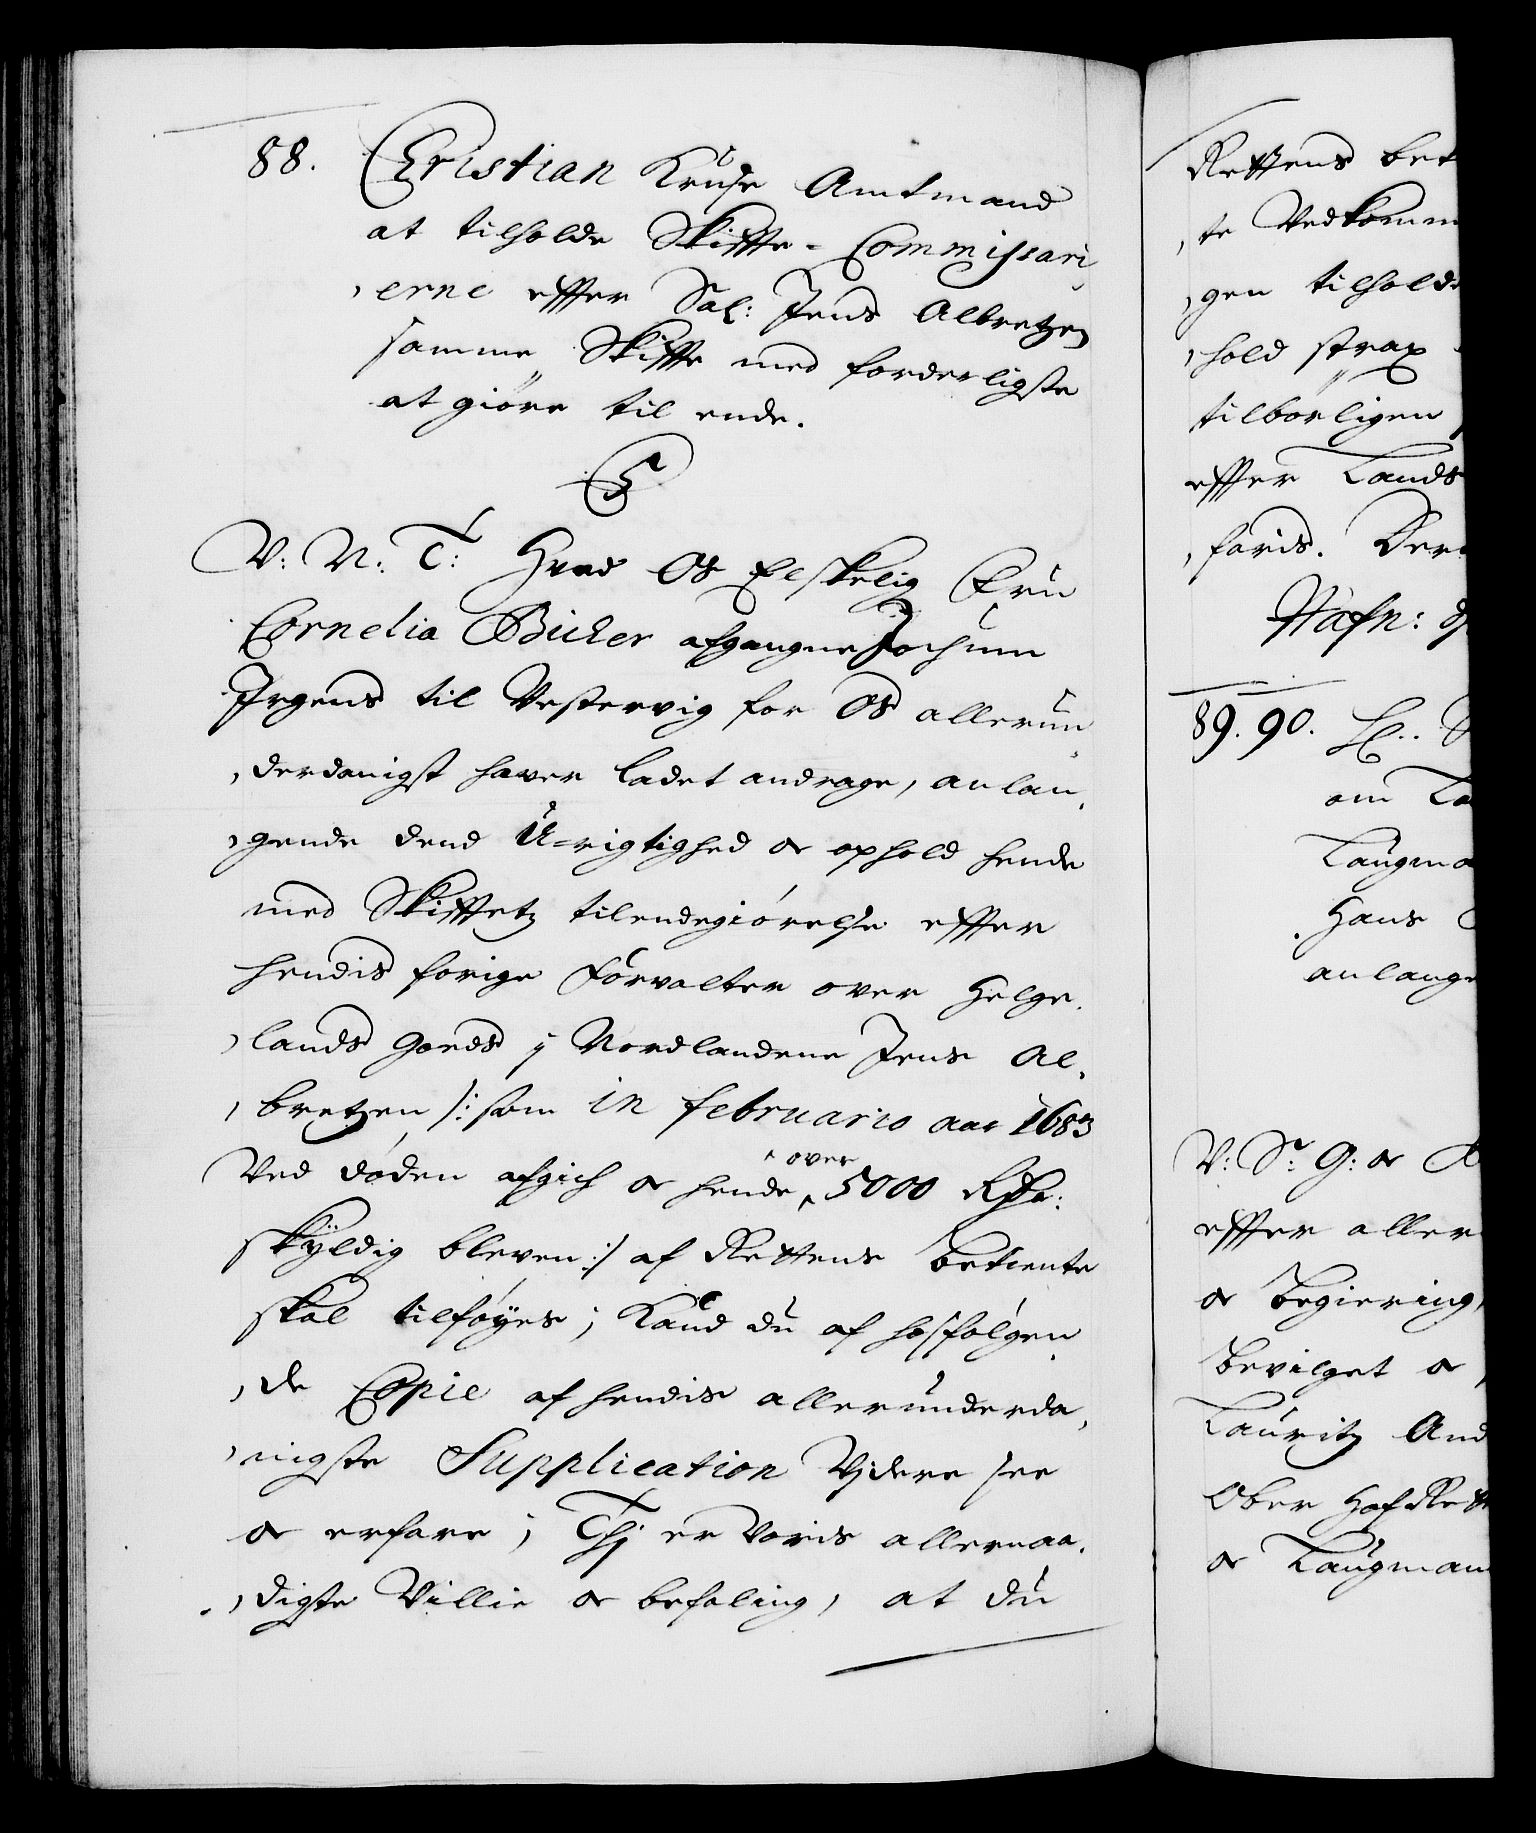 88. Christian Kruse Amtmand
at tilholde Skiffte-Commissari
erne effter Sal: Jens Albretzen
samme Skiffte med forderligste
at giöre til ende.
C5
V: N: T: Hvad Os Elskelig Fru
Cornelia Bicker afgangne Jochum
Irgens til Vestervig for Os allerun
derdanigst haver ladet andrage, anlan,
gende dend U-rigtighed og ophold hende
med Skifftetz tilendegiörelse effter
hendis forige Forvalter over Helge,
lands Goeds i Nordlandene Jens Al,
bretzen /: som in februario aar 1683
Ved döden afgich og hende over 5000 Rdr:
skÿldig bleven :/ af Rettens betiente
skal tilföyes; Kand du af hosfölgen
de Copie af hendis allerunderda,
nigste Supplication Vjdere see
og erfare; Thj er Voris allernaa,
digste Villie og befaling, at du
Rettens bet
te Vedkomm
gen tilholde
hold strax
tilbörligen
effter Lands
faris. Der
Hafn: d
89. 90. L:
om La
Laugma
Hans
anlange
V: Sr: G: og
effter aller
og begiering,
bevilget og
Lauritz And
Ober HofRett
og Laugman